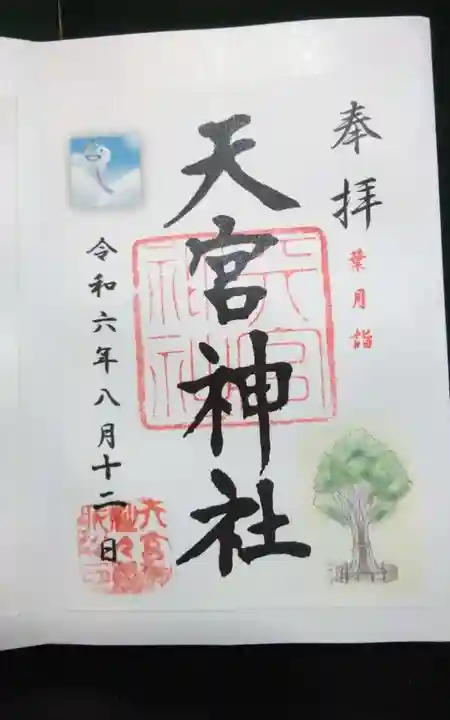 奉拝
葉月詣
天宮神社
天宮神社
令和六年八月十二日